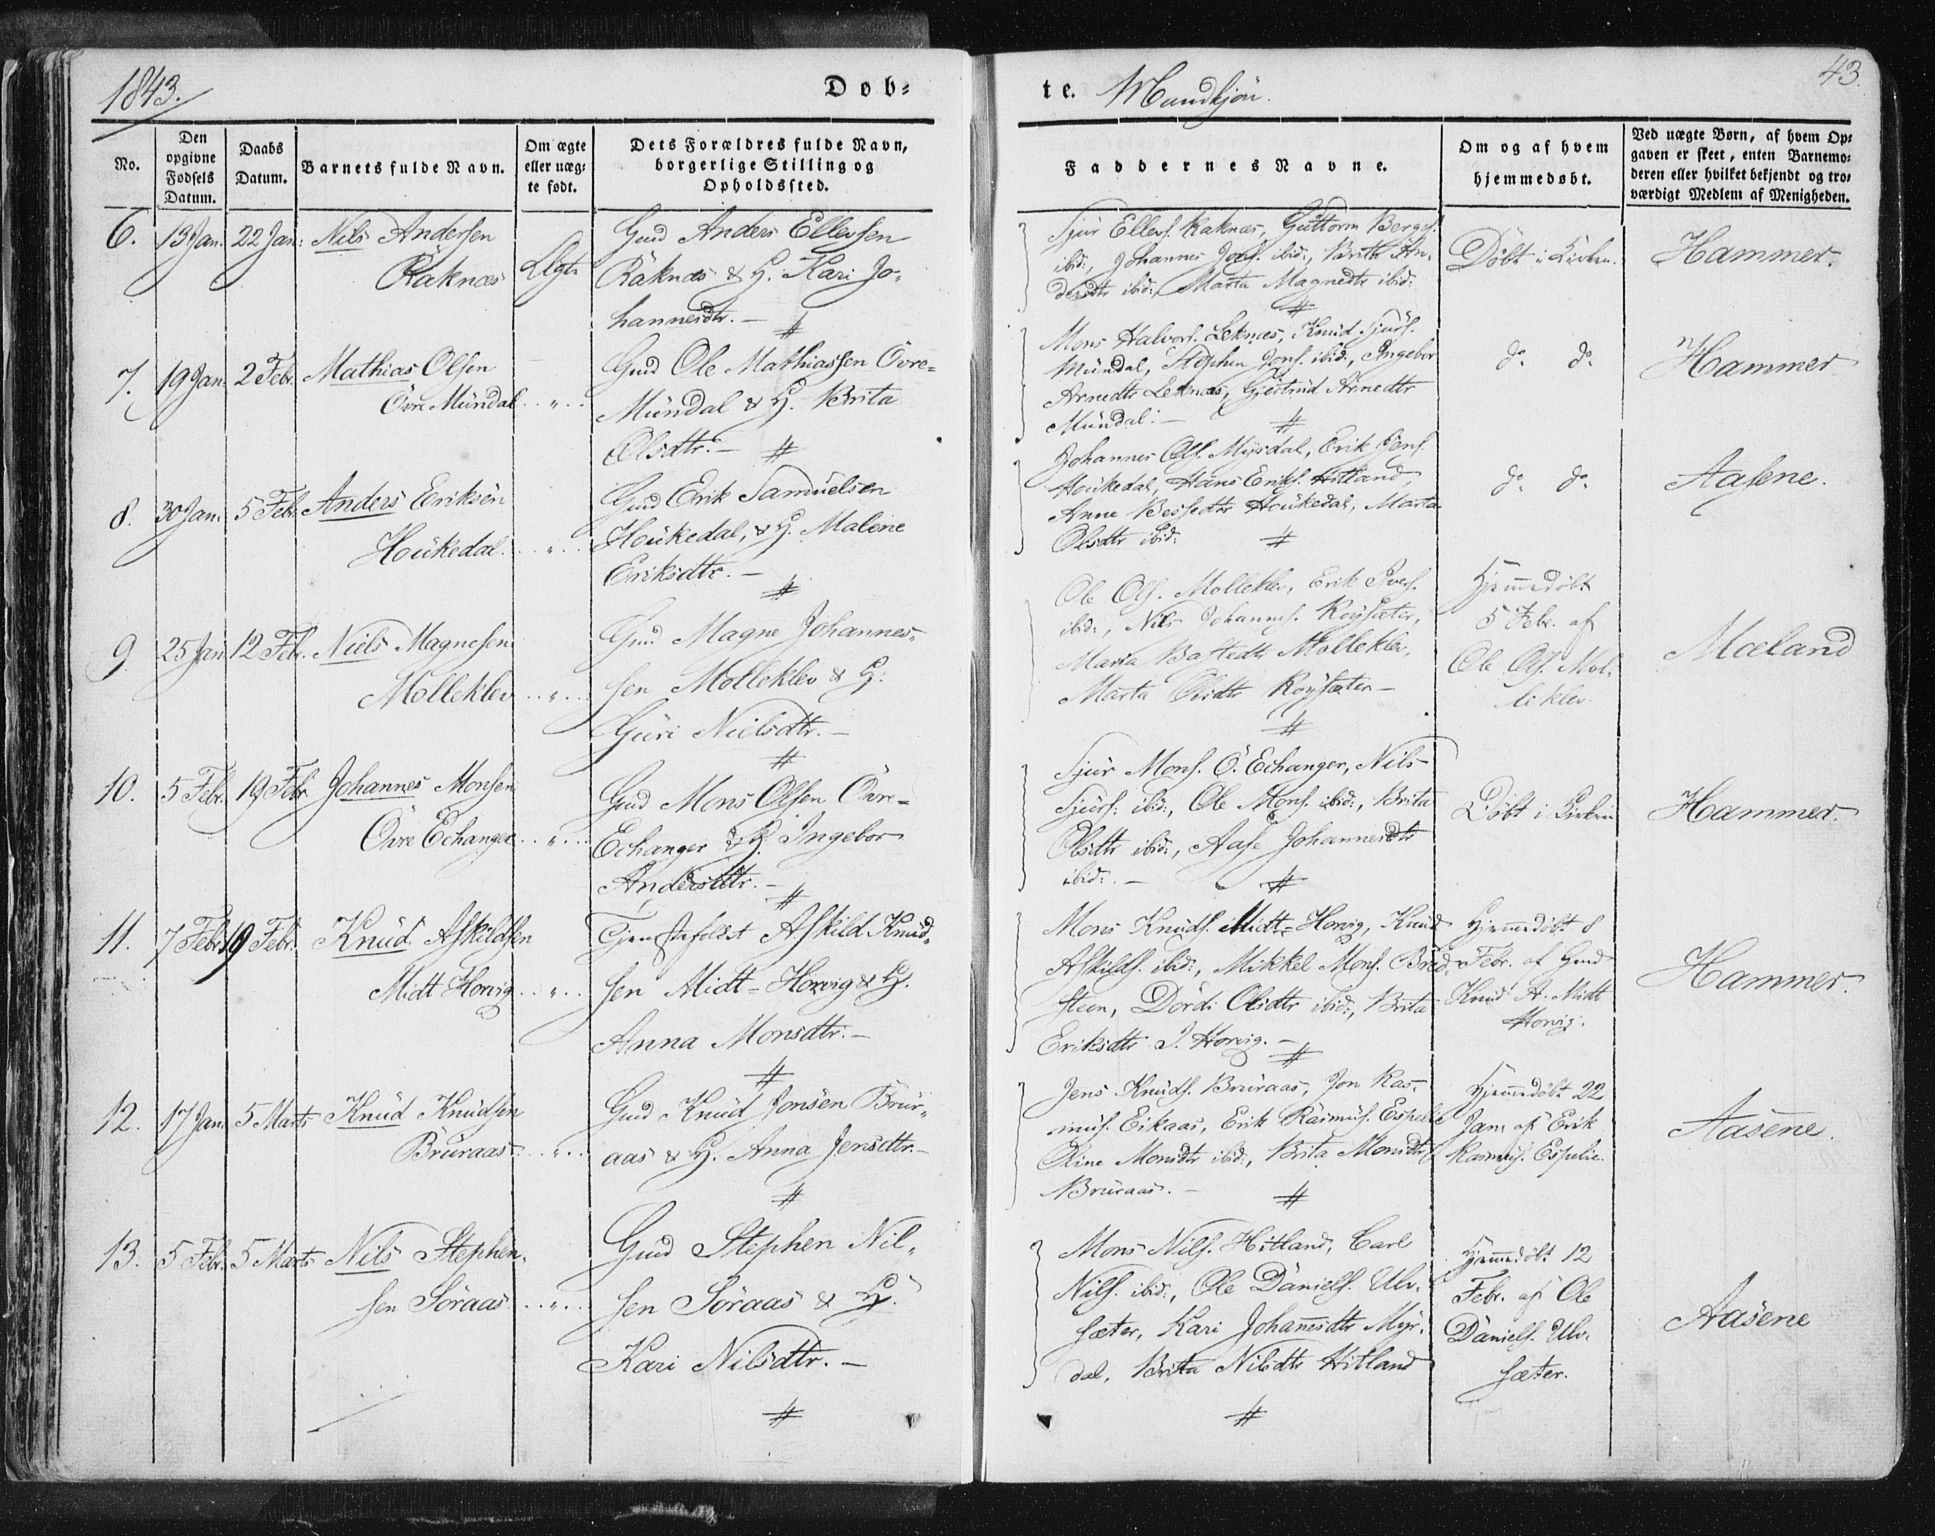 1843.
Døb-
te. Mandkjön.
43.
No.
Den opgivne Fødsels Datum.
Daabs Datum.
Barnets fulde Navn.
Om ægte eller uæg-
te født.
Dets Forældres fulde Navn,
borgerlige Stilling og
Opholdssted.
Faddernes Navne.
Om og af hvem
hjemmedøbt.
Ved uægte Børn, af hvem Op-
gaven er skeet, enten Barnemo-
deren eller hvilket bekjendt og tro-
værdigt Medlem af Menigheden.
6. 13 Jan. 22 Jan: Nils Andersen
Raknæs
Ægte
Gmd Anders Ellevsen
Raknæs & H. Kari Jo-
hannesdtr. —
Sjur Ellevs. Raknæs, Guttorm Berges.
ibid:, Johannes Jons. ibid:, Brita An-
dersdtr ibid:, Marta Magnedtr ibid:
Døbt i Kirken.
Hammer.
7. 19 Jan. 2 Febr. Mathias Olsen
Övre Mündal . . „ . .
Gmd Ole Mathiassen Övre-
Mündal & H. Brita
Olsdtr. —
Mons Halvors. Leknæs, Knud Sjurs.
Mündal, Stephen Jons. ibid:, Ingebor
Arnedtr Leknæs, Gjertrud Arnedtr
Mündal: —
do. do.
Hammer
8. 30 Jan. 5 Febr. Anders Eriksen
Houkedal. . . „ . .
Gmd Erik Samuelsen
Houkedal, & H. Malene
Eriksdtr. —
Johannes Ols. Myrdal, Erik Jons.
Houkedal, Hans Eriks. Hitland,
Anne Bessedtr Houkedal, Marta
Olsdtr ibid:
do. do.
Aasene.
9. 25 Jan. 12 Febr. Niels Magnesen
Molleklev . . „ . .
Gmd Magne Johannes-
sen Molleklev & H:
Guri Nielsdtr. —
Ole Ols. Molleklev, Erik Ivers.
ibid:, Nils Johannes. Röysæter,
Maria Bastedtr Molleklev,
Marta Olsdtr Röysæter —
Hjemmedøbt
5 Febr. af
Ole Ols. Mol-
leklev.
Mæland
10. 5 Febr. 19 Febr Johannes Monsen
Övre Echanger . . „ . .
Gmd Mons Olsen Övre-
Echanger & H. Ingebor
Andersdtr. —
Sjur Mons. Ö. Echanger, Nils
Sjurs. ibid:, Ole Mons. ibid:, Brita
Olsdtr ibid:, Aase Johannesdtr
ibid:. —
Døbt i Kirken
Hammer.
11. 7 Febr. 19 Febr. Knud Askildsen
Midt Horvig . . „ . .
Askild Knud-
sen Midt-Horvig & H.
Anna Monsdtr. —
Mons Knuds. Midt-Horvig, Knud
Askilds. ibid:, Mikkel Mons. Bred-
steen, Dordi Olsdtr ibid:, Brita
Eriksdtr I. Horvig. —
Hjemmedøbt 8
Febr. af Gmd
Knud A. Midt
Horvig.
Hammer.
12. 17 Jan. 5 Marts Knud Knudsen
Bruraas . . „ . .
Gmd Knud Jonsen Brur-
aas & H. Anna Jensdtr. —
Jens Knuds. Bruraas, Jon Ras-
mus. Eikaas, Erik Rasmus. Espelie
Oline Monsdtr ibid:, Brita Monsdtr
Bruraas. —
Hjemmedøbt 22
Jan. af Erik
Rasmus. Espelie.
Aasene.
13. 5 Febr. 5 Marts Nils Stephen-
sen Søraas . . „ . .
Gmd Stephen Nil-
sen Søraas & H.
Kari Nilsdtr. —
Mons Nils. Hitland, Carl
Nils. ibid:, Ole Daniels. Ulv-
sæter, Kari Johannesdtr Myr-
dal, Brita Nilsdtr Hitland
Hjemmedøbt 12
Febr. af Ole
Daniels. Ulv-
sæter.
Aasene